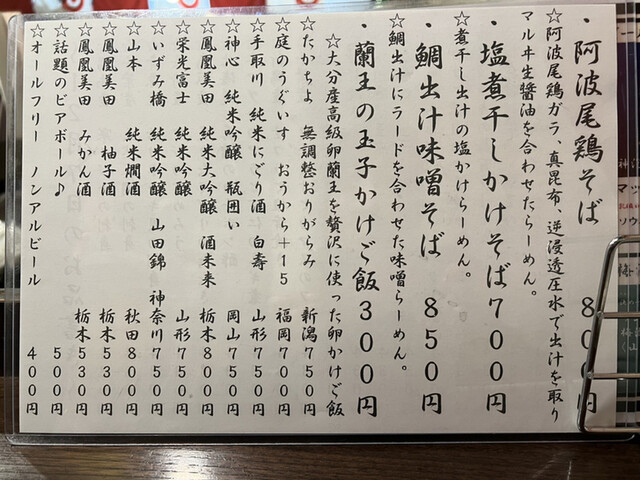 ・阿波尾鶏そば　８００円
☆阿波尾鶏ガラ、真昆布、逆浸透圧水で出汁を取り
マルヰ生醤油を合わせたらーめん。
・塩煮干しかけそば７００円
☆煮干し出汁の塩かけらーめん。
・鯛出汁味噌そば　８５０円
☆鯛出汁にラードを合わせた味噌らーめん。
・蘭王の玉子かけご飯３００円
☆大分産高級卵蘭王を贅沢に使った卵かけご飯
☆たかちよ　無調整おりがらみ　新潟７５０円
☆庭のうぐいす　おうから＋１５　福岡７００円
☆手取川　純米にごり酒　白寿　山形７５０円
☆神心　純米吟醸　瓶囲い　岡山７５０円
☆鳳凰美田　純米大吟醸　酒未来　栃木８００円
☆栄光富士　純米吟醸　山形７５０円
☆いずみ橋　純米吟醸　山田錦　神奈川７５０円
☆山本　純米燗酒　秋田８００円
☆鳳凰美田　柚子酒　栃木５３０円
☆鳳凰美田　みかん酒　栃木５３０円
☆話題のビアボール♪　５００円
☆オールフリー　ノンアルビール　４００円